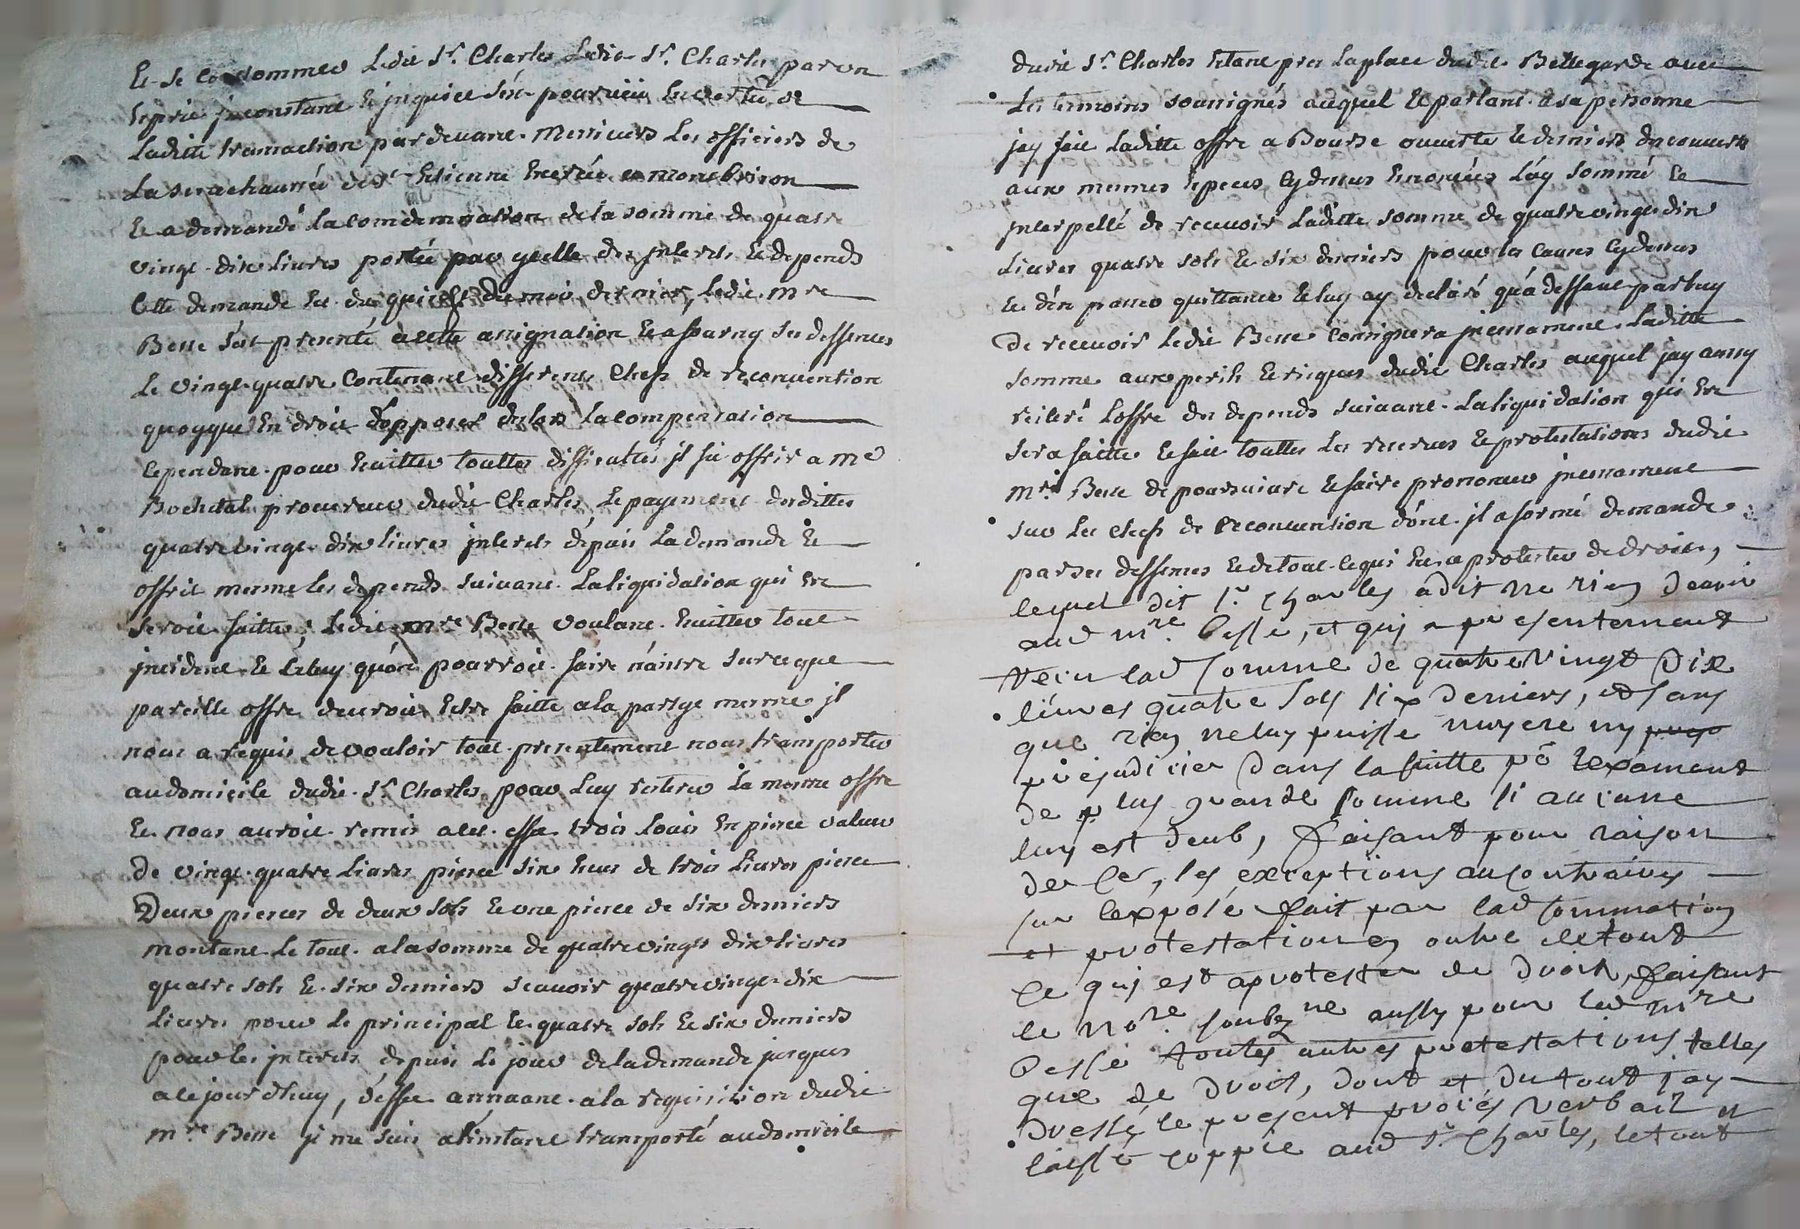 Et se consommer Ledit Sr. Charles Ledit Sr. Charles par un
Esprit inconstant & inquiet s'est pourvû en vertu de
Laditte transaction pardevant Messieurs Les officiers de
La senechaussée de St Etienne en montbrison
Et a demandé La condemnation de la somme de quatre
vingt dix Livres portée par ycelle des jnterets & depends
Cette demande est du du mois dernier, Ledit Mre
Besse s'est presenté a cette assignation Et a fourny ses deffenses
Le vingt quatre Contenant differents Chefs de reconvention
quoyque En droit d'opposer deslors La compensation
Cependant pour Eviter touttes difficultés jl fit offrir a Me
Bochetal procureur dudit Charles Le payement desdittes
quatre vingt dix Livres jnterets depuis La demande Et
offrit mesme les depends suivant La liquidation qui En
seroit faitte; Ledit Mre Besse voulant Eviter tout
jncident Et Celuy qu'on pourroit faire naitre sur ce que
pareille offre devroit Estre faitte a la partye mesme jl
nous a requis de vouloir tout presentement nous transporter
au domicile dudit Sr Charles pour Luy reiterer La mesme offre
Et nous auroit remis a cet effet trois Louis En piece valeur
de vingt quatre Livres piece six Ecus de trois Livres piece
Deux pieces de deux sols Et une piece de six deniers
montant Le tout a la somme de quatre vingts dix livres
quatre sols Et six deniers scavoir quatre vingt dix
Livres pour Le principal Et quatre sols Et six deniers
pour les jnterets depuis Le jour de la demande jusques
a ce jourd'huy, d'effet annuant a la requisition dudit
Mre Besse je me suis a l'instant transporté au domicile
dudit Sr. Charles Etant pres La place dudit Bellegarde avec
Les temoins soussignés auquel Et parlant a sa personne
jay fait Laditte offre a Bourse ouverte Et deniers decouverts
aux mesmes Especes Cydessus Enoncées L'ay sommé Et
jnterpellé de recevoir Laditte somme de quatre vingt dix
Livres quatre sols Et six deniers pour les Causes Cydessus
Et d'en passer quittance Et luy ay declaré qu'a deffaut par luy
De recevoir Ledit Besse Consignera jncessamment Laditte
somme aux perils Et risques dudit Charles auquel jay aussy
reiteré L'offre des depends suivant La liquidation qui En
sera faitte Et fait touttes Les reserves Et protestations dudit
Mre. Besse de poursuivre Et faire prononcer jncessamment
sur Les Chefs de reconvention dont jl a formé demande
par ses deffenses Et de tout ce qui Est a protester de droit,
lequel dit Sr Charles a dit ne rien devoir
aud Mre. Besse, et qui a presentement
receu lad somme de quatre vingt dix
livres quatre sols six deniers, et sans
que rien ne luy puisse nuyre ny
prejudicier dans la suitte pr le payement
de plus grande somme si aucune
luy est deub, faisant pour raison
de ce, les exceptions au contraires
sur lexposé fait par lad sommation
et protestation en outre de tout
ce qui est a protester de droit, faisant
le nore. soubzne aussy pour led Mre
Besse toutes autres protestations telles
que de droit, dont et du tout jay
dressé le present procés verbail et
laissé coppie aud Sr Charles, le tout